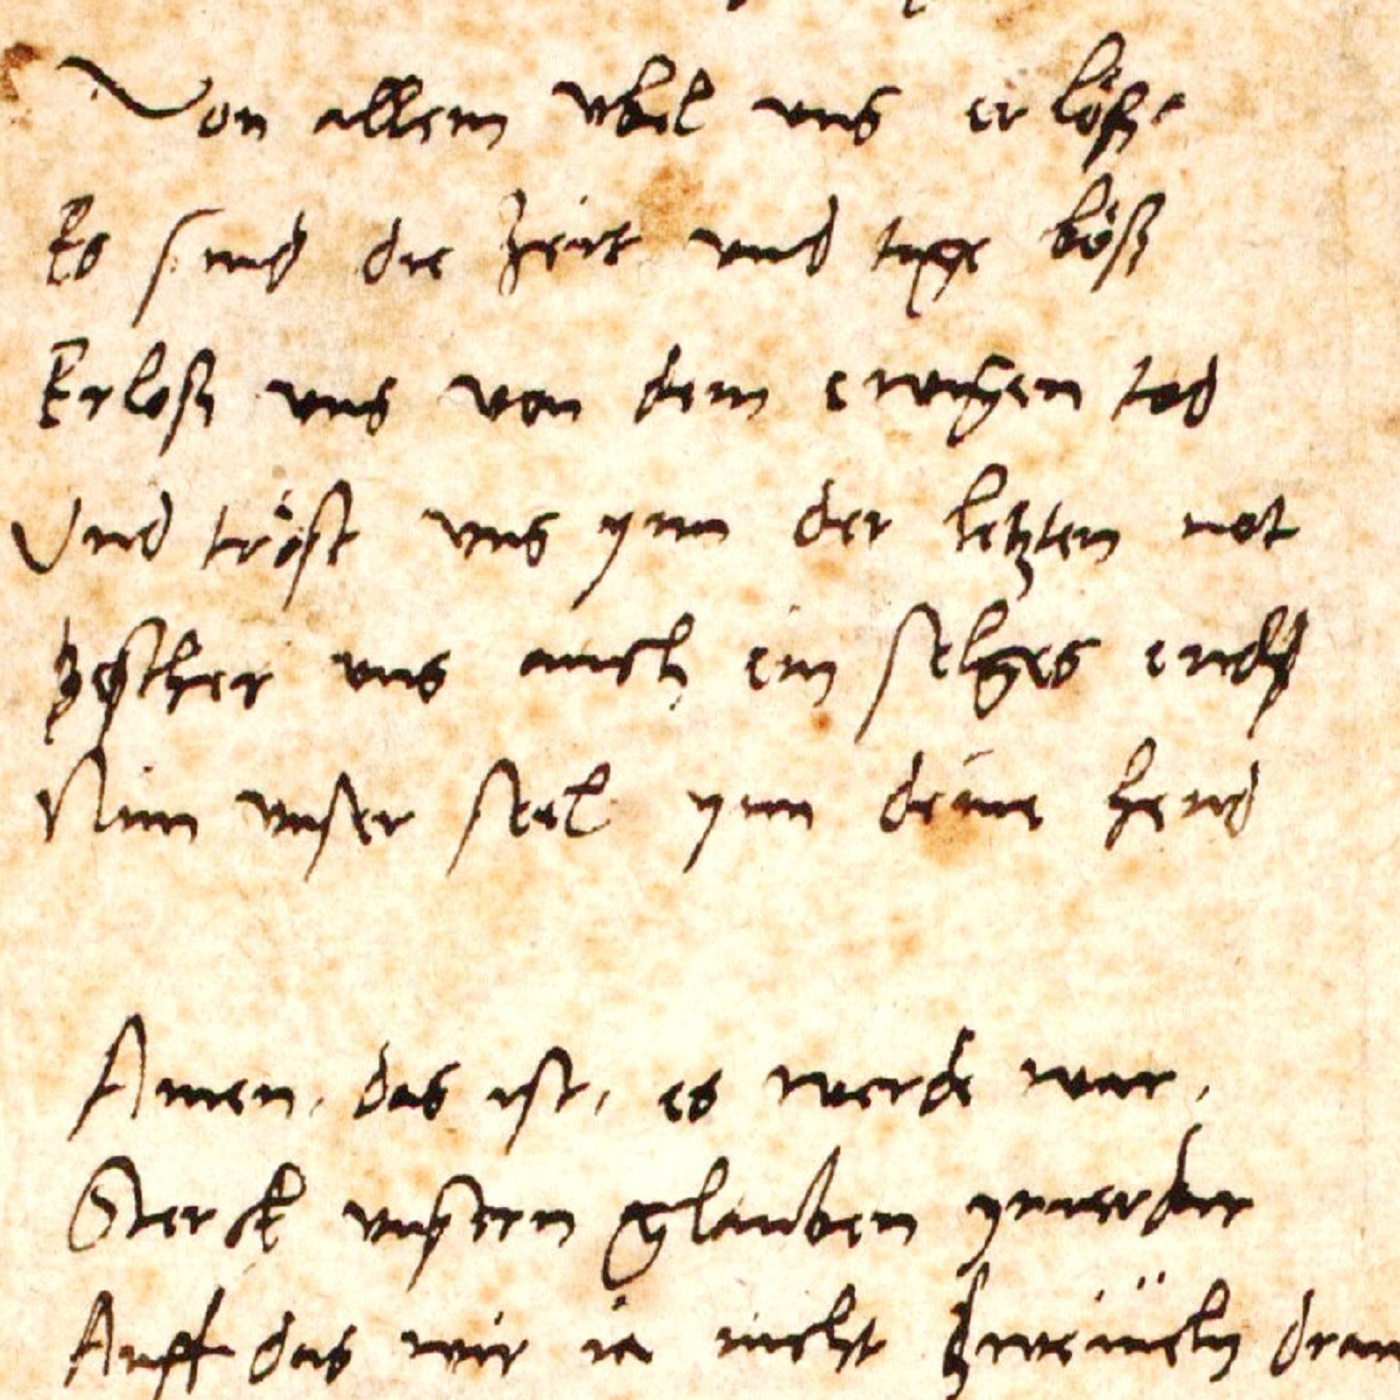 Von allem vbel vns erlös
Es sind die zeit vnd tage bös
Erlos vns von dem ewigen tod
Vnd tröst vns ynn der letzten not
bescher vns auch ein seliges end
Nim vnser seel ynn deine hend
Amen, das ist, es werde war,
Sterck vnsern glauben ymerdar
Auff das wir ia nicht zweiueln dran